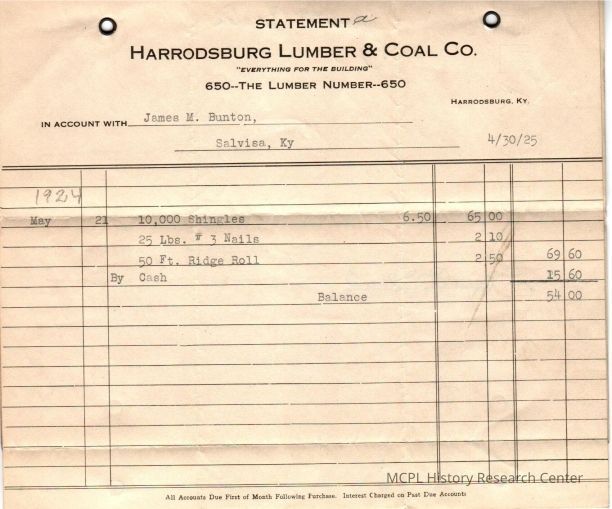 STATEMENT
HARRODSBURG LUMBER & COAL CO.
"EVERYTHING FOR THE BUILDING"
650--THE LUMBER NUMBER--650
HARRODSBURG, KY.
IN ACCOUNT WITH James M. Bunton,
Salvisa, Ky 4/30/25
1924
May 21 10,000 Shingles 6.50 65 00
25 Lbs. # 3 Nails 2 10
50 Ft. Ridge Roll 2 50 69 60
By Cash 15 60
Balance 54 00
MCPL History Research Center
All Accounts Due First of Month Following Purchase. Interest Charged on Past Due Accounts